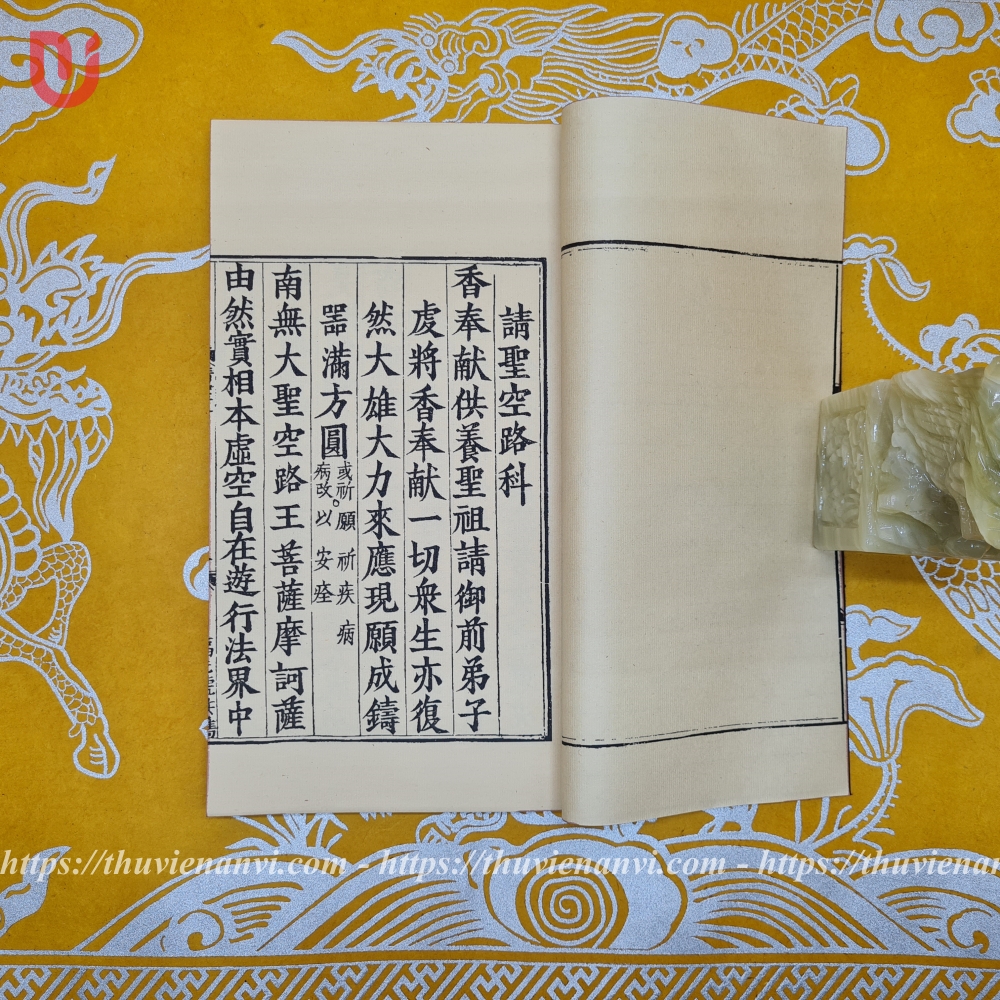 請聖空路科
香奉献供養聖祖請御前弟子
虔將香奉献一切衆生亦復
然大雄大力來應現願成鑄
噐滿方圓
或祈願祈疾病
病改以安痊
南無大聖空路王菩薩摩訶薩
由然實相本虛空自在遊行法界中
https://thuvienanvi.com - https://thuvienanvi.com - https://thuvienanv